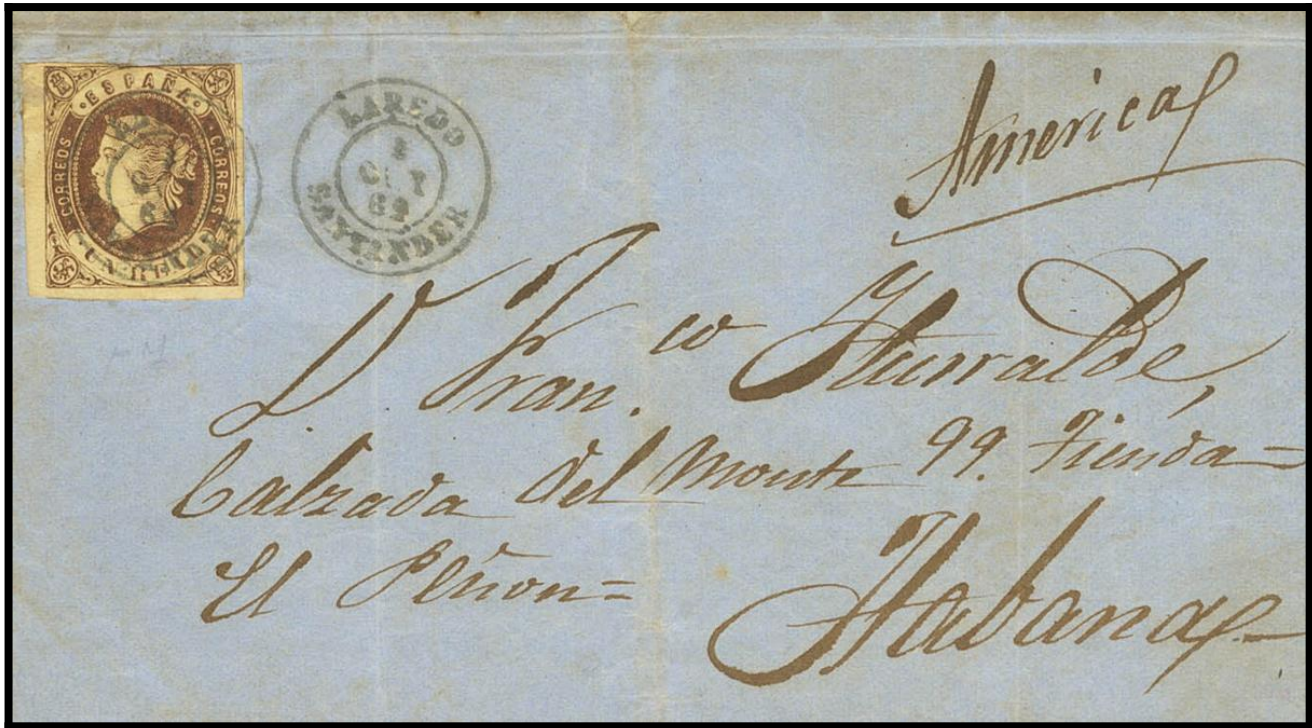 · ESPAÑA ·
CORREOS
CORREOS
UN REAL
LAREDO
OCT
62
SANTANDER
America
D Fran.co Iturralde,
Calzada del Monte 99. Tienda=
El Peñon=
Habana